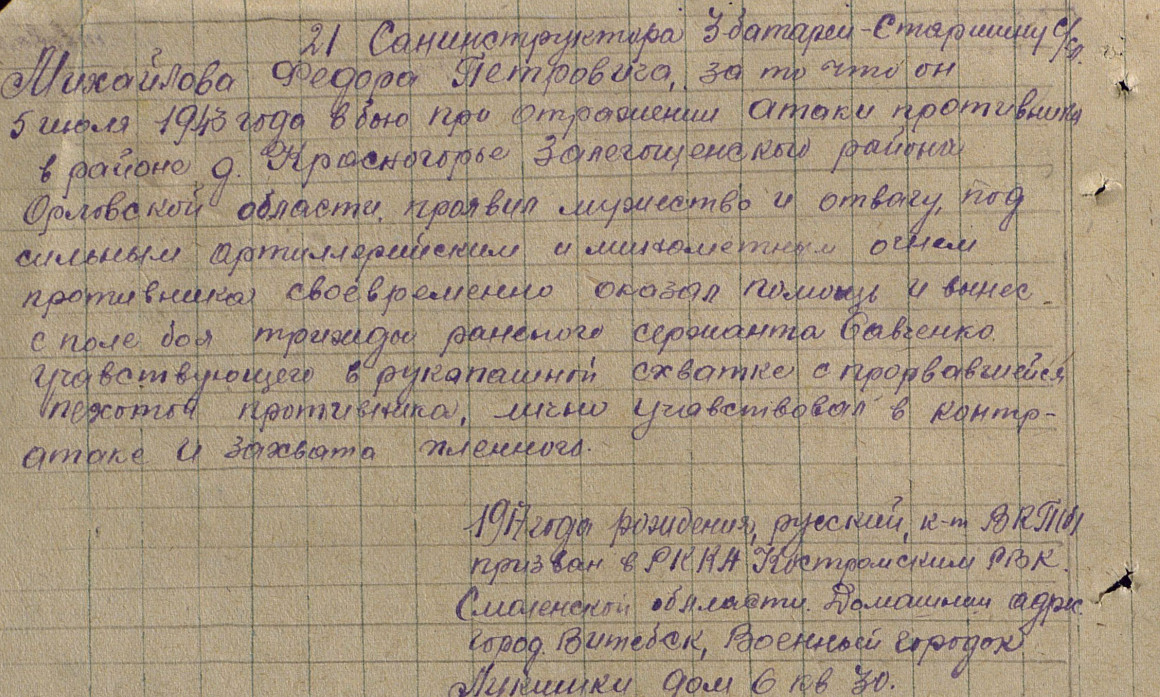 21 Санинструктора 3 батареи - Старшину С/сл.
Михайлова Федора Петровича, за то что он
5 июля 1943 года в бою при отражении атаки противника
в районе д. Красногорье Залегощенского района
Орловской области, проявил мужество и отвагу, под
сильным артиллерийским и минометным огнем
противника своевременно оказал помощь и вынес
с поле боя трижды раненого сержанта Савченко.
Учавствующего в рукапашной схватке с прорвавшейся
пехотой противника, лично учавствовал в контр-
атаке и захвата пленного.
1917 года рождения, русский, к-т ВКП(б)
призван в РККА Костромским РВК.
Смоленской области. Домашний адрес
город Витебск, Военный городок
Лукишки дом 6 кв 30.